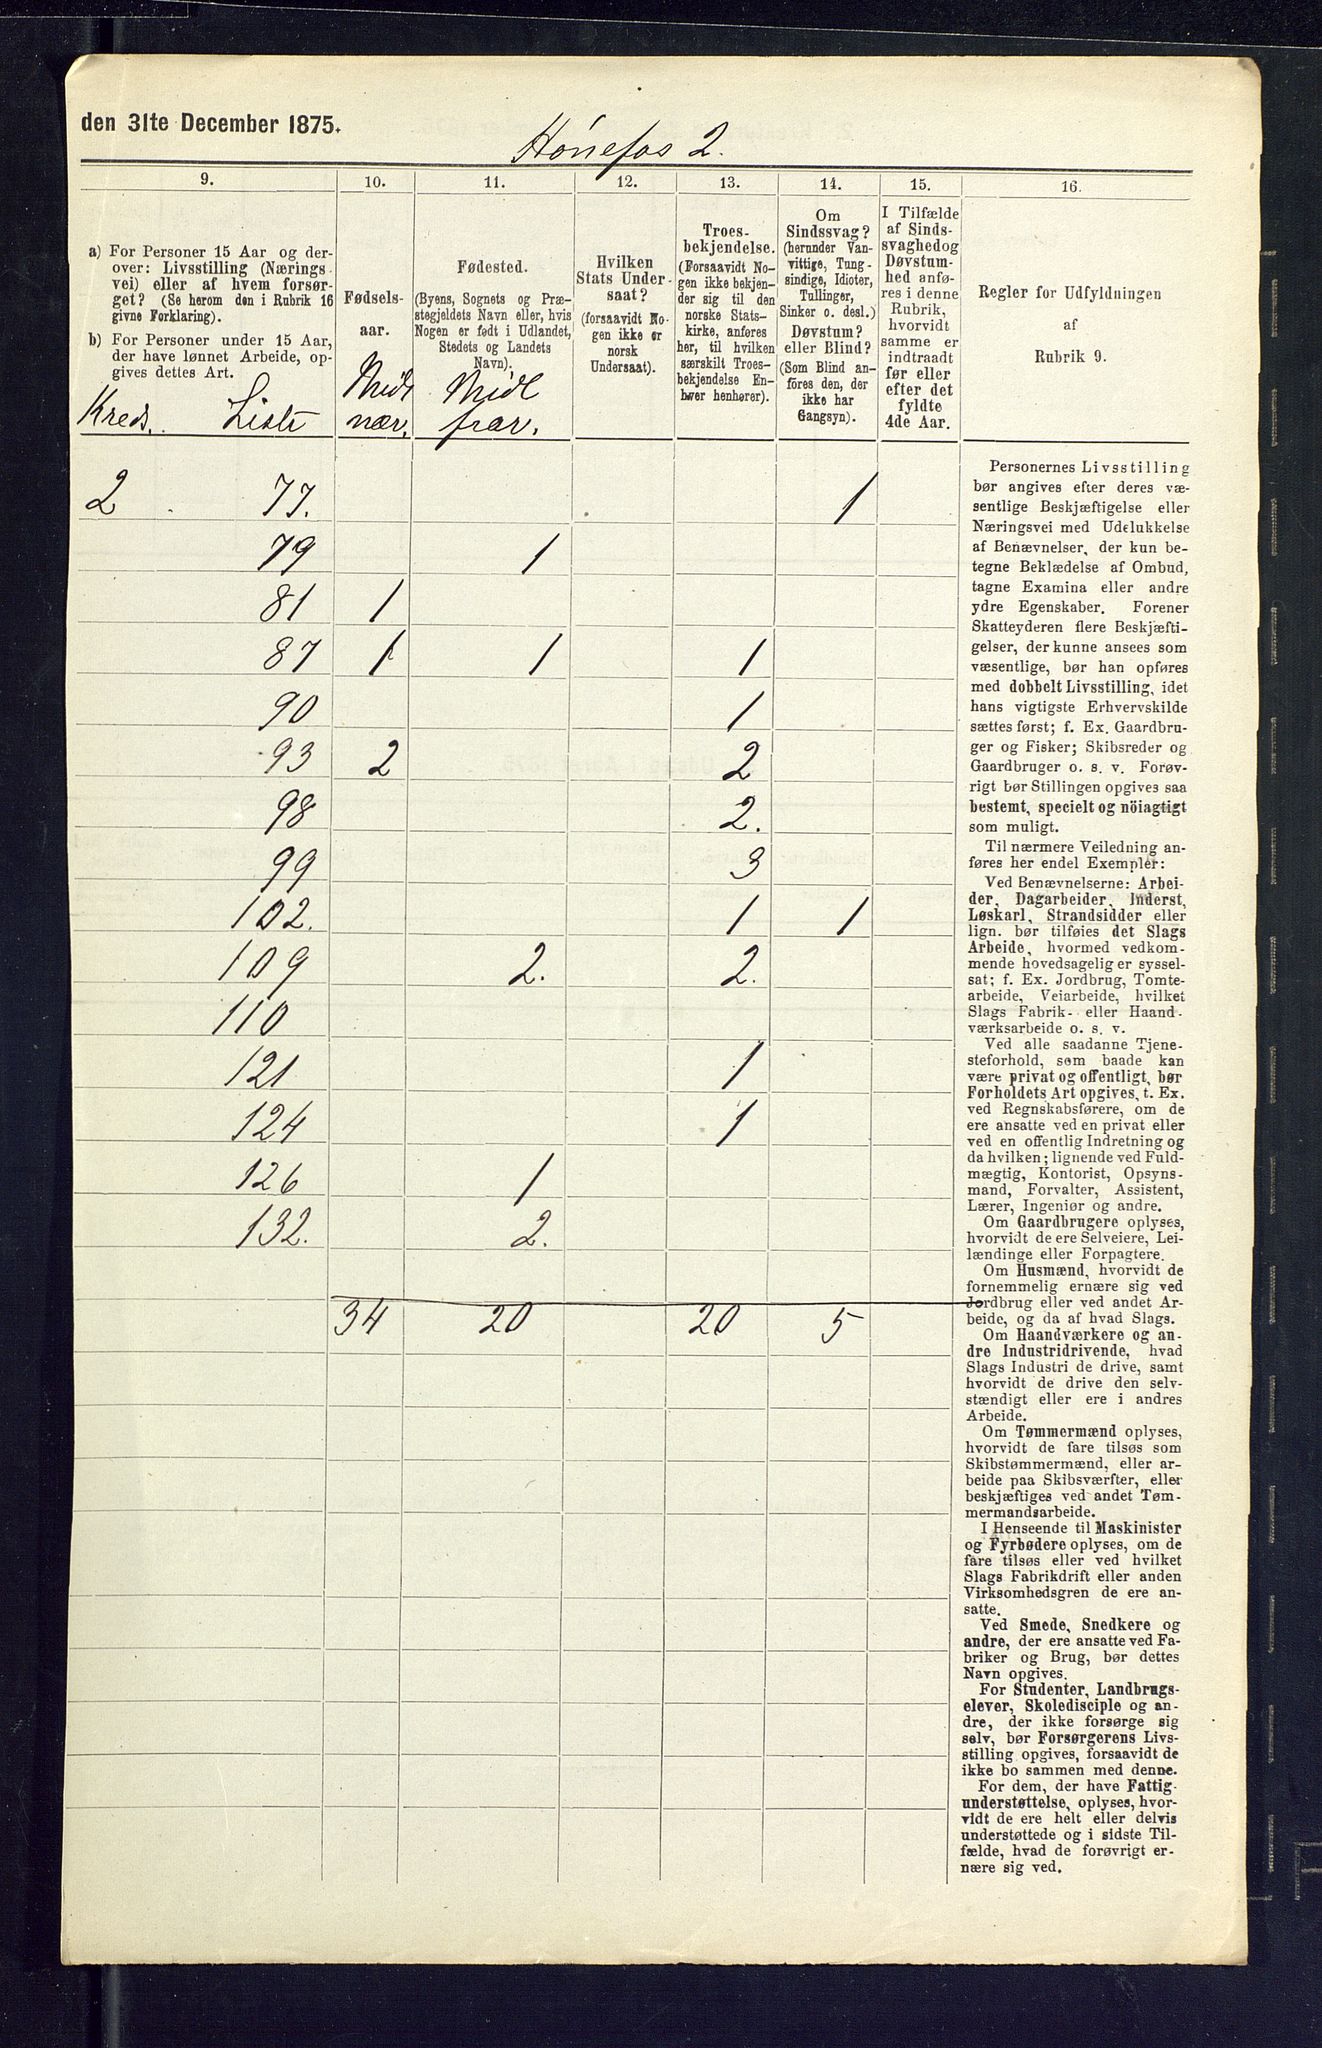 den 31te December 1875.
Hónefos 2.
9. 10. 11. 12. 13. 14. 15. 16.
a) For Personer 15 Aar og der-
over: Livsstilling (Nærings-
vei) eller af hvem forsør-
get? (Se herom den i Rubrik 16
givne Forklaring).
b) For Personer under 15 Aar,
der have lønnet Arbeide, op-
gives dettes Art.
Kreds. Liste
Fødsels-
aar.
Midt
nær.
Fødested.
(Byens, Sognets og Præ-
stegjeldets Navn eller, hvis
Nogen er født i Udlandet,
Stedets og Landets
Navn).
Midl
frav.
Hvilken
Stats Under-
saat?
(forsaavidt No-
gen ikke er
norsk
Undersaat).
Troes-
bekjendelse.
(Forsaavidt No-
gen ikke bekjen-
der sig til den
norske Stats-
kirke, anføres
her, til hvilken
særskilt Troes-
bekjendelse En-
hver henhører).
Om
Sindssvag?
(herunder Van-
vittige, Tung-
sindige, Idioter,
Tullinger,
Sinker o. desl.)
Døvstum?
eller Blind?
(Som Blind an-
föres den, der
ikke har
Gangsyn).
I Tilfælde
af Sinds-
svaghed og
Døvstum-
hed anfø-
res i denne
Rubrik,
hvorvidt
samme er
indtraadt
før eller
efter det
fyldte
4de Aar.
Regler for Udfyldningen
af
Rubrik 9.
2 77. 1
79 1
81 1
87 1 1 1
90 1
93 2 2
98 2.
99 3
102. 1 1
109 2. 2.
110
121 1
124 1
126 1
132. 2.
34 20 20 5
Personernes Livsstilling
bør angives efter deres væ-
sentlige Beskjæftigelse eller
Næringsvei med Udelukkelse
af Benævnelser, der kun be-
tegne Beklædelse af Ombud,
tagne Examina eller andre
ydre Egenskaber. Forener
Skatteyderen flere Beskjæfti-
gelser, der kunne ansees som
væsentlige, bør han opføres
med dobbelt Livsstilling, idet
hans vigtigste Erhvervskilde
sættes først; f. Ex. Gaardbru-
ger og Fisker; Skibsreder og
Gaardbruger o. s. v. Forøv-
rigt bør Stillingen opgives saa
bestemt, specielt og nöiagtigt
som muligt.
Til nærmere Veiledning an-
føres her endel Exempler:
Ved Benævnelserne: Arbei-
der, Dagarbeider, Inderst,
Løskarl, Strandsidder eller
lign. bør tilføies det Slags
Arbeide, hvormed vedkom-
mende hovedsagelig er syssel-
sat; f. Ex. Jordbrug, Tomte-
arbeide, Veiarbeide, hvilket
Slags Fabrik- eller Haand-
værksarbeide o. s. v.
Ved alle saadanne Tjene-
steforhold, som baade kan
være privat og offentligt, bør
Forholdets Art opgives, t. Ex.
ved Regnskabsførere, om de
ere ansatte ved en privat eller
ved en offentlig Indretning og
da hvilken; lignende ved Fuld-
mægtig, Kontorist, Opsyns-
mand, Forvalter, Assistent,
Lærer, Ingeniør og andre.
Om Gaardbrugere oplyses,
hvorvidt de ere Selveiere, Lei-
lændinge eller Forpagtere.
Om Husmænd, hvorvidt de
fornemmelig ernære sig ved
Jordbrug eller ved andet Ar-
beide, og da af hvad Slags.
Om Haandværkere og an-
dre Industridrivende, hvad
Slags Industri de drive, samt
hvorvidt de drive den selv-
stændigt eller ere i andres
Arbeide.
Om Tømmermænd oplyses,
hvorvidt de fare tilsøs som
Skibstømmermænd, eller ar-
beide paa Skibsværfter, eller
beskjæftiges ved andet Tøm-
mermandsarbeide.
I Henseende til Maskinister
og Fyrbødere oplyses, om de
fare tilsøs eller ved hvilket
Slags Fabrikdrift eller anden
Virksomhedsgren de ere an-
satte.
Ved Smede, Snedkere og
andre, der ere ansatte ved Fa-
briker og Brug, bør dettes
Navn opgives.
For Studenter, Landbrugs-
elever, Skoledisciple og an-
dre, der ikke forsørge sig
selv, bør Forsørgerens Livs-
stilling opgives, forsaavidt de
ikke bo sammen med denne.
For dem, der have Fattig-
understøttelse, oplyses, hvor-
vidt de ere helt eller delvis
understøttede og i sidste Til-
fælde, hvad de forøvrigt er-
nære sig ved.